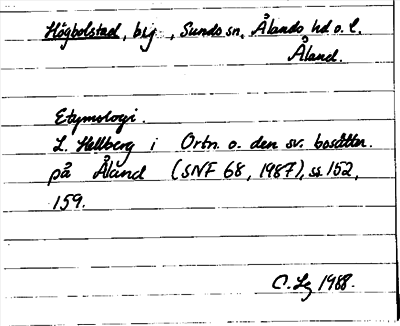 Högbolstad, by, Sunds sn, Ålands hd o. l.
Åland.
Etymologi.
L. Hellberg i Ortn. o. den sv. bosättn.
på Åland (SNF 68, 1987), ss. 152,
159.
C. Lg 1988.